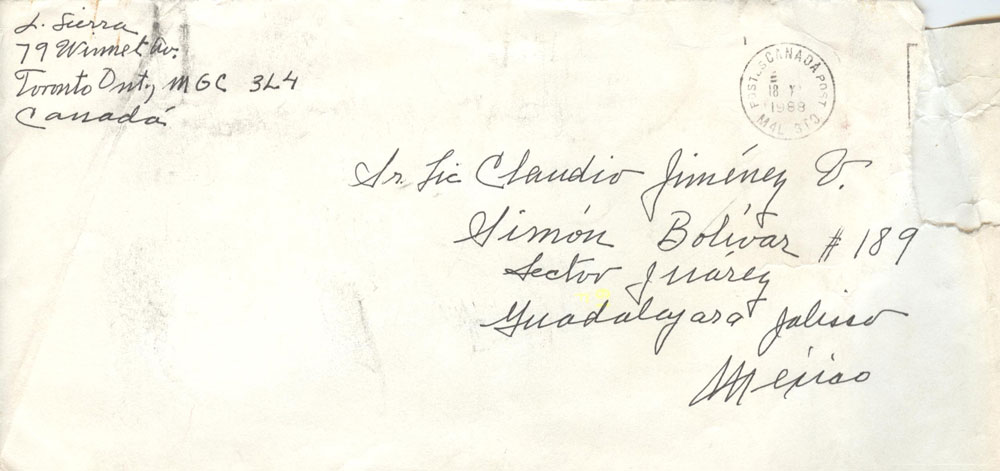 L. Sierra
79 Winnet Av.
Toronto Ont, M6C 3L4
Canadá
POSTES CANADA POST
18 V
1988
M4L 3T0
Sr. Lic Claudio Jiménez V.
Simón Bolívar # 189
Sector Juárez
Guadalajara Jalisco
México